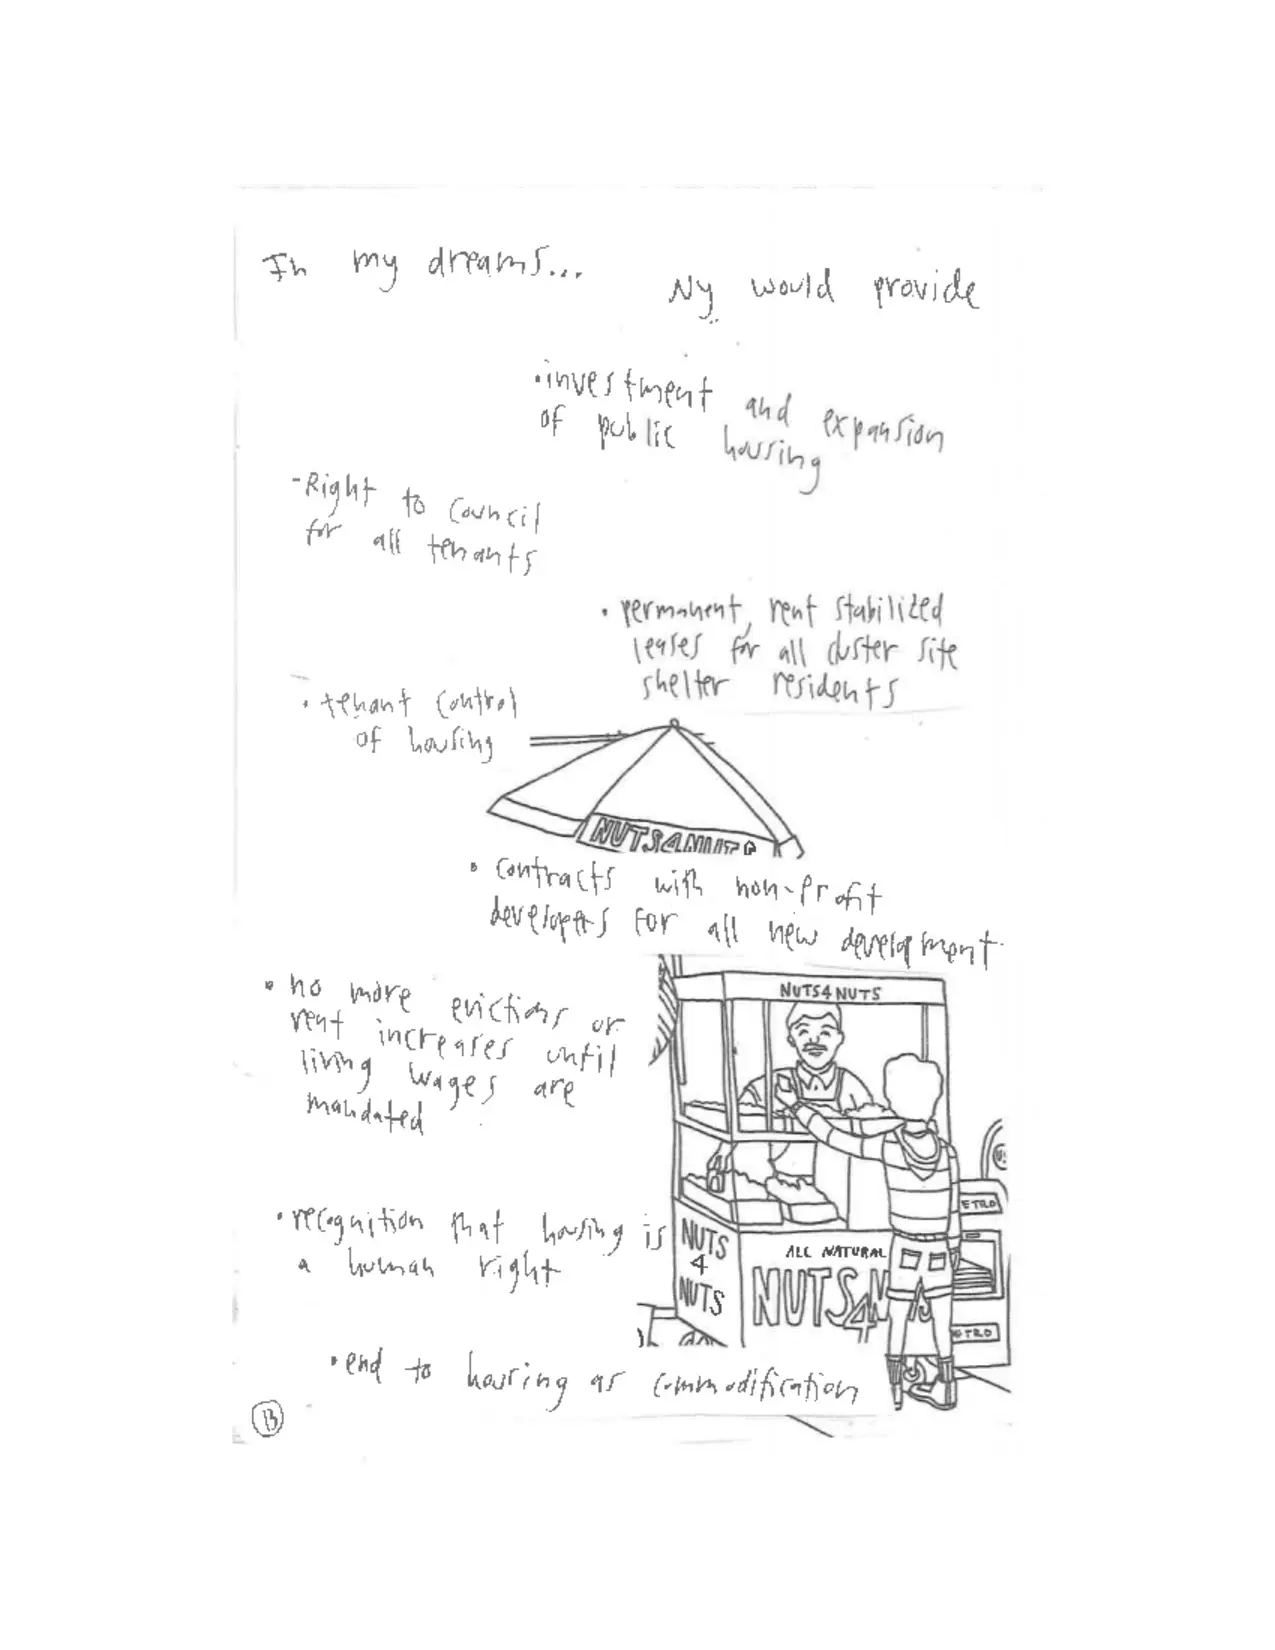 In my dreams...
Ny would provide
• investment and expansion
of public housing
- Right to Council
for all tenants
• permanent, rent stabilized
leases for all cluster site
shelter residents
• tenant control
of housing
NUTS4NUT
• contracts with non-profit
developers for all new development
• no more evictions or
rent increases until
living wages are
mandated
NUTS4NUTS
• recognition that housing is
a human right
NUTS
4
NUTS
ALL NATURAL
NUTS4N
ETRO
ETRO
• end to housing as commodification
13